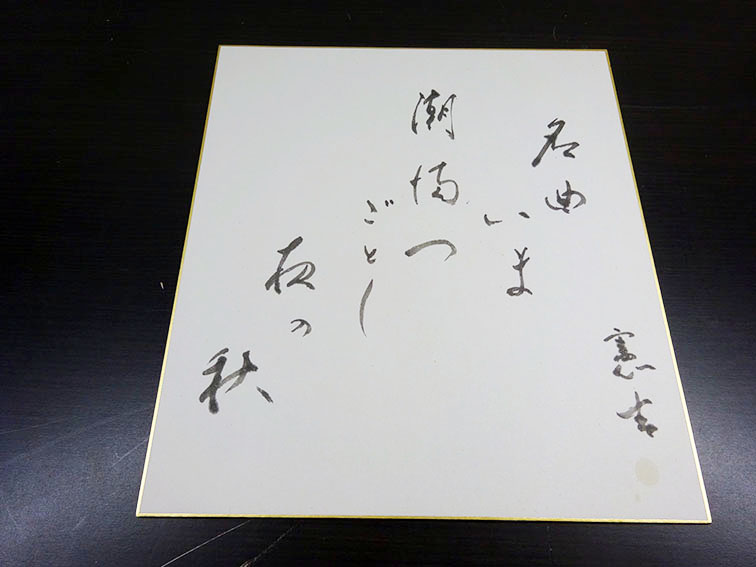 名曲
いま
潮満つ
ごとし
夜の
秋
憲吉